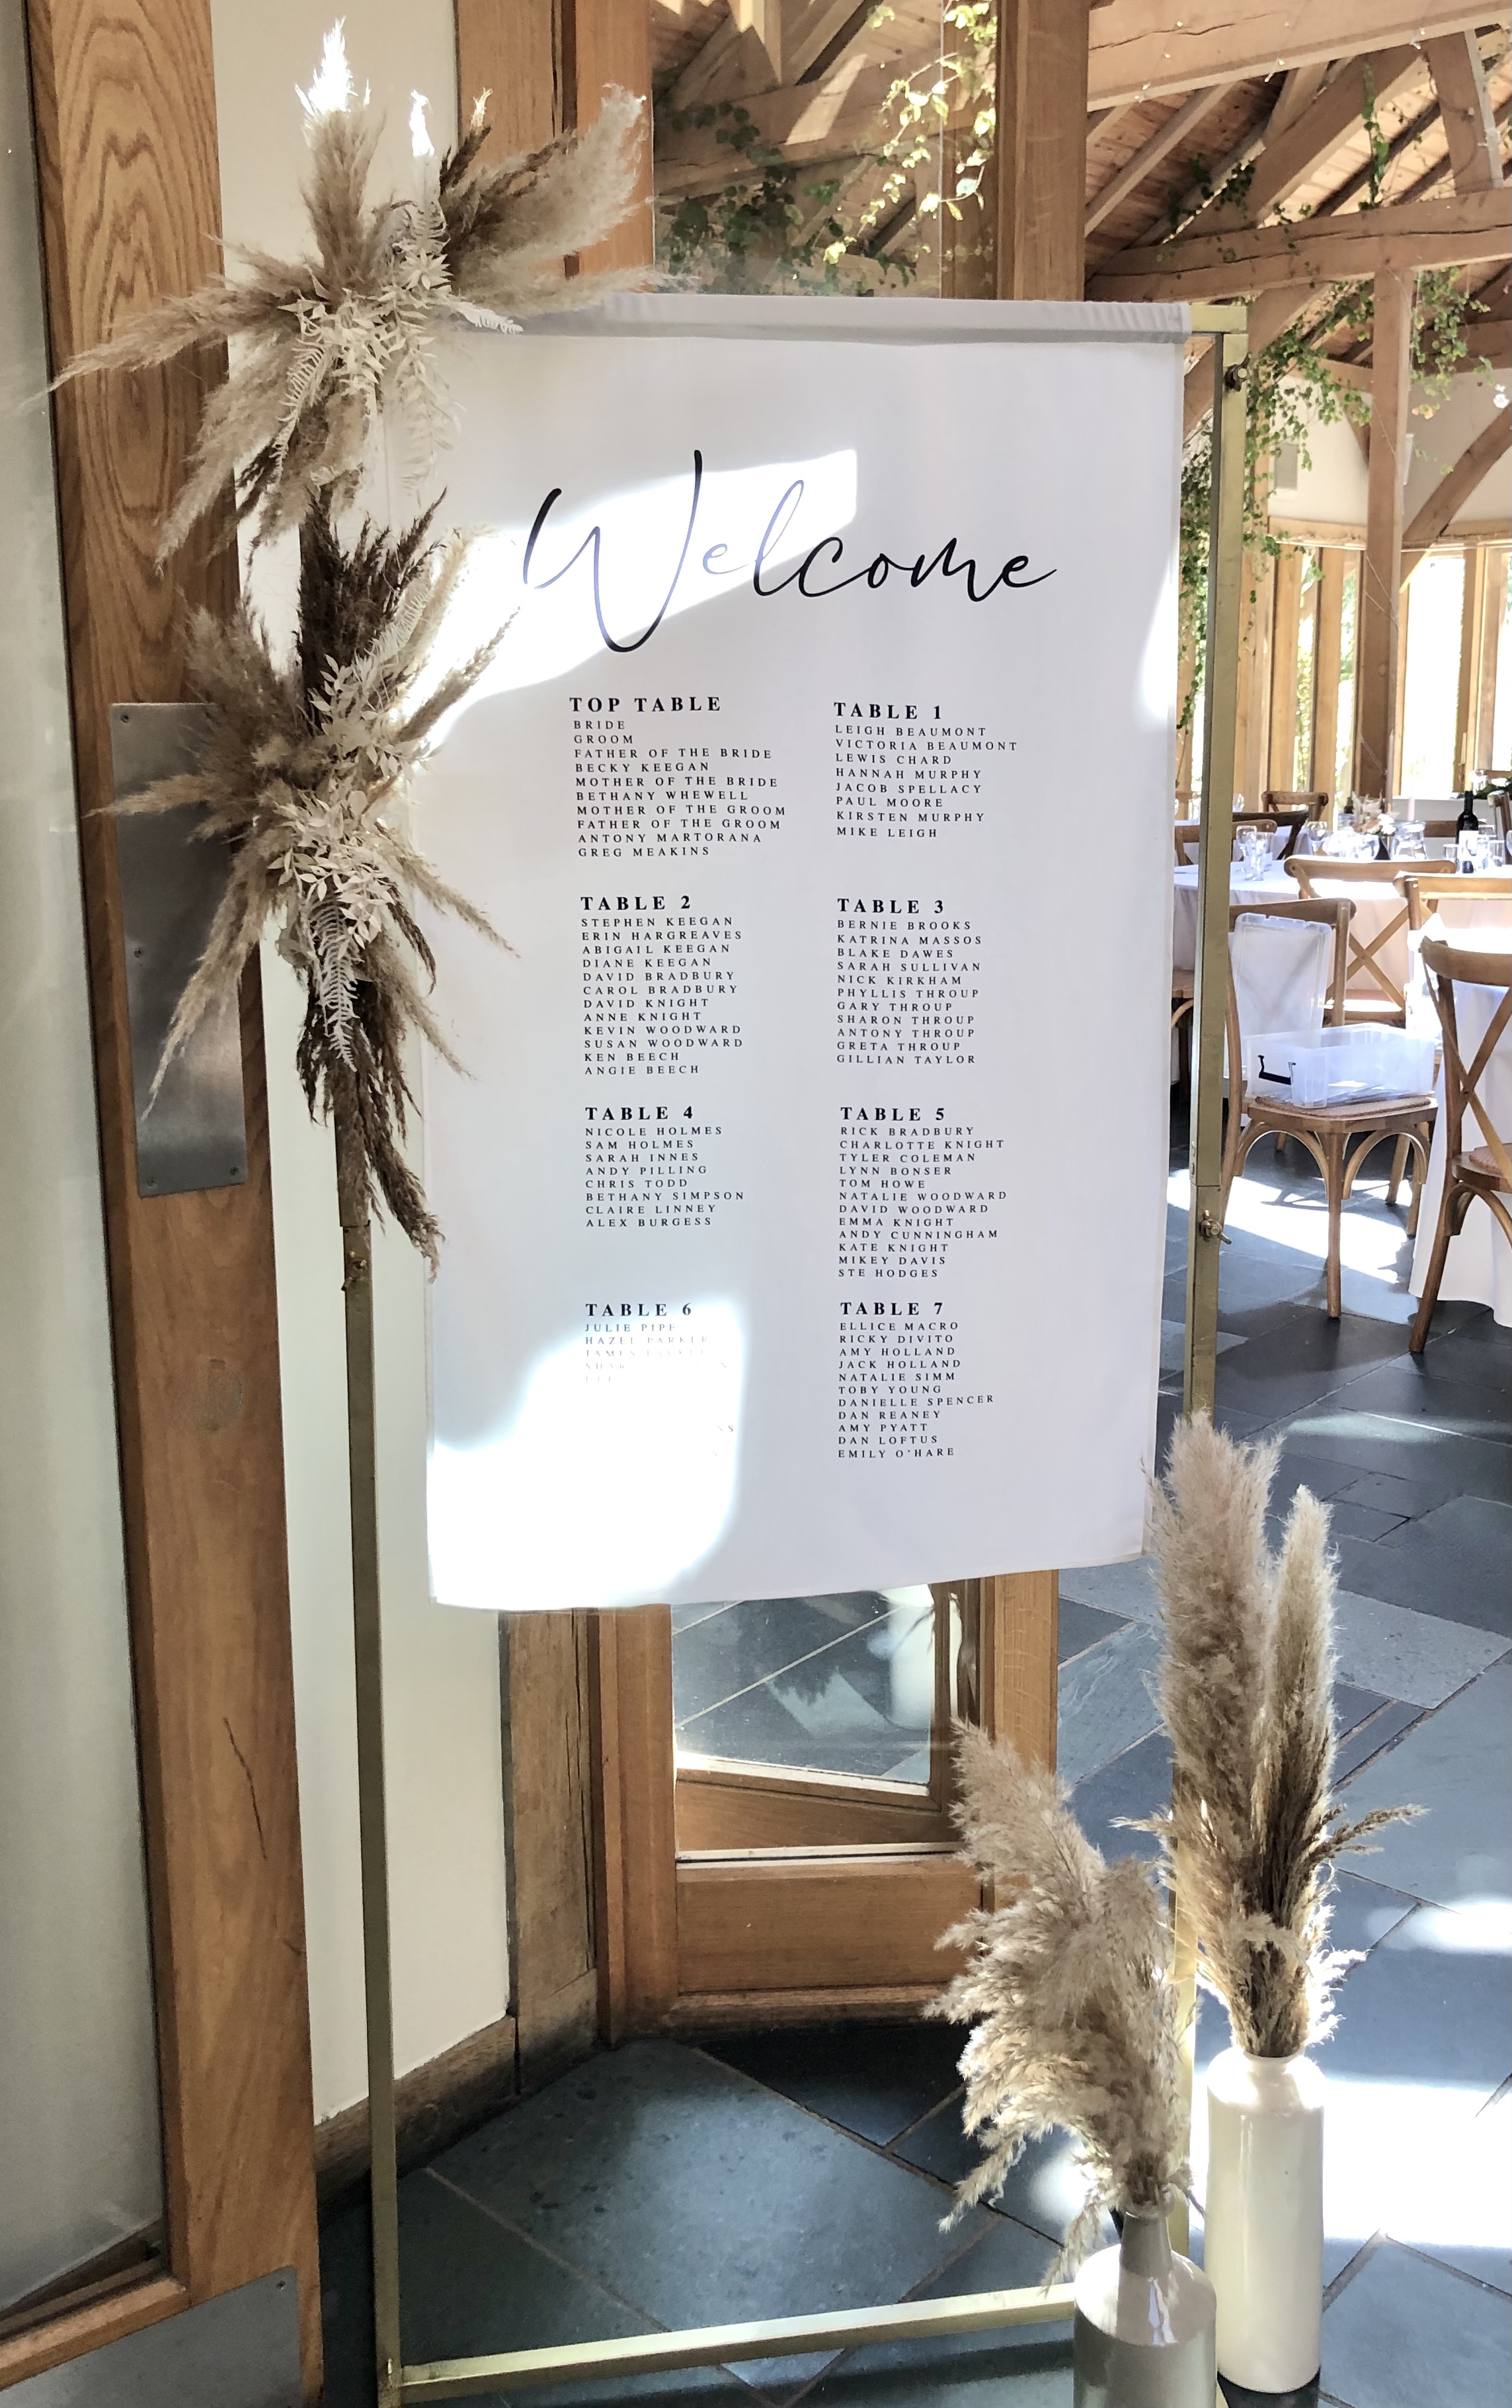 Welcome
TOP TABLE
BRIDE
GROOM
FATHER OF THE BRIDE
BECKY KEEGAN
MOTHER OF THE BRIDE
BETHANY WHEWELL
MOTHER OF THE GROOM
FATHER OF THE GROOM
ANTONY MARTORANA
GREG MEAKINS
TABLE 1
LEIGH BEAUMONT
VICTORIA BEAUMONT
LEWIS CHARD
HANNAH MURPHY
JACOB SPELLACY
PAUL MOORE
KIRSTEN MURPHY
MIKE LEIGH
TABLE 2
STEPHEN KEEGAN
ERIN HARGREAVES
ABIGAIL KEEGAN
DIANE KEEGAN
DAVID BRADBURY
CAROL BRADBURY
DAVID KNIGHT
ANNE KNIGHT
KEVIN WOODWARD
SUSAN WOODWARD
KEN BEECH
ANGIE BEECH
TABLE 3
BERNIE BROOKS
KATRINA MASSOS
BLAKE DAWES
SARAH SULLIVAN
NICK KIRKHAM
PHYLLIS THROUP
GARY THROUP
SHARON THROUP
ANTONY THROUP
GRETA THROUP
GILLIAN TAYLOR
TABLE 4
NICOLE HOLMES
SAM HOLMES
SARAH INNES
ANDY PILLING
CHRIS TODD
BETHANY SIMPSON
CLAIRE LINNEY
ALEX BURGESS
TABLE 5
RICK BRADBURY
CHARLOTTE KNIGHT
TYLER COLEMAN
LYNN BONSER
TOM HOWE
NATALIE WOODWARD
DAVID WOODWARD
EMMA KNIGHT
ANDY CUNNINGHAM
KATE KNIGHT
MIKEY DAVIS
STE HODGES
TABLE 6
JULIE
HAZEL PARKER
JAMES
TABLE 7
ELLICE MACRO
RICKY DIVITO
AMY HOLLAND
JACK HOLLAND
NATALIE SIMM
TOBY YOUNG
DANIELLE SPENCER
DAN REANEY
AMY PYATT
DAN LOFTUS
EMILY O'HARE